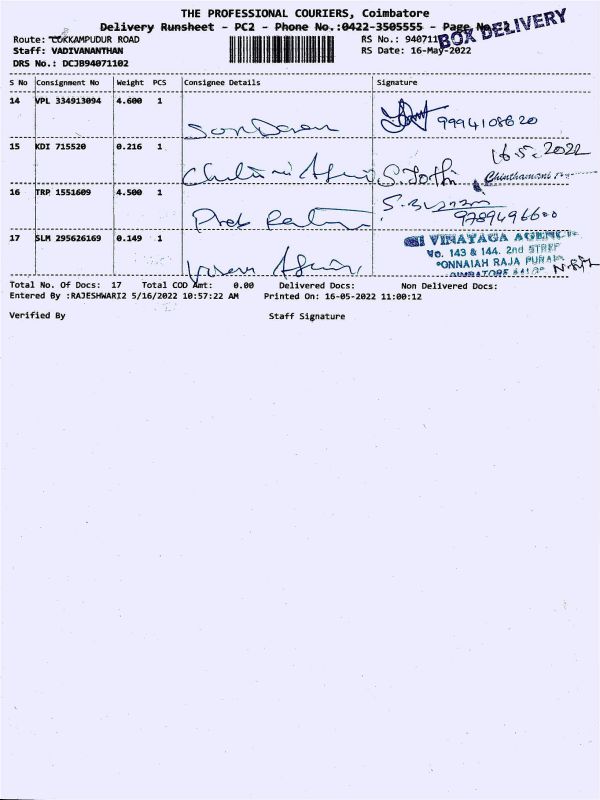 THE PROFESSIONAL COURIERS, Coimbatore
Delivery Runsheet - PC2 - Phone No.:0422-3505555 - Page No.: 2
BOX DELIVERY
Route: COKKAMPUDUR ROAD
RS No.: 940711
Staff: VADIVANANTHAN
RS Date: 16-May-2022
DRS No.: DCJB94071102
S No Consignment No Weight PCS Consignee Details Signature
14 VPL 334913094 4.600 1
9994108620
15 KDI 715520 0.216 1
16.5.2022
S. Jothi
Chinthamani
16 TRP 1551609 4.500 1
9789496600
17 SLM 295626169 0.149 1
SRI VINAYAGA AGENCY
No. 143 & 144. 2nd STREET
PONNAIAH RAJA PURAM
COIMBATORE
Total No. Of Docs: 17 Total COD Amt: 0.00 Delivered Docs: Non Delivered Docs:
Entered By :RAJESHWARI2 5/16/2022 10:57:22 AM Printed On: 16-05-2022 11:00:12
Verified By Staff Signature